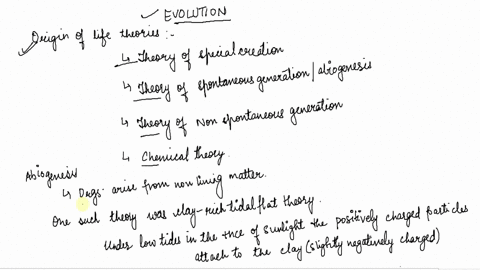 EVOLUTION
Origin of life theories :-
↳ Theory of special creation
↳ Theory of spontaneous generation/abiogenesis
↳ Theory of Non spontaneous generation
↳ Chemical theory.
Abiogenesis
↳ Orgs. arise from non living matter.
One such theory was clay-rich tidal flat theory.
Under low tides in the +nce of sunlight the positively charged particles
attach to the clay (slightly negatively charged)